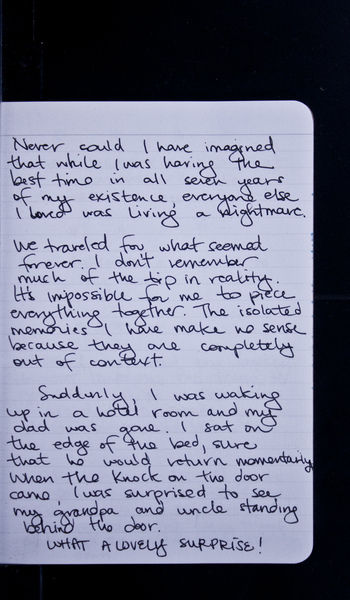 Never could I have imagined
that while I was having the
best time in all seven years
of my existence, everyone else
I loved was living a nightmare.
We traveled for what seemed
forever. I don't remember
much of the trip in reality.
It's impossible for me to piece
everything together. The isolated
memories I have make no sense
because they are completely
out of context.
Suddenly, I was waking
up in a hotel room and my
dad was gone. I sat on
the edge of the bed, sure
that he would return momentarily
When the knock on the door
came, I was surprised to see
my grandpa and uncle standing
behind the door.
WHAT A LOVELY SURPRISE!